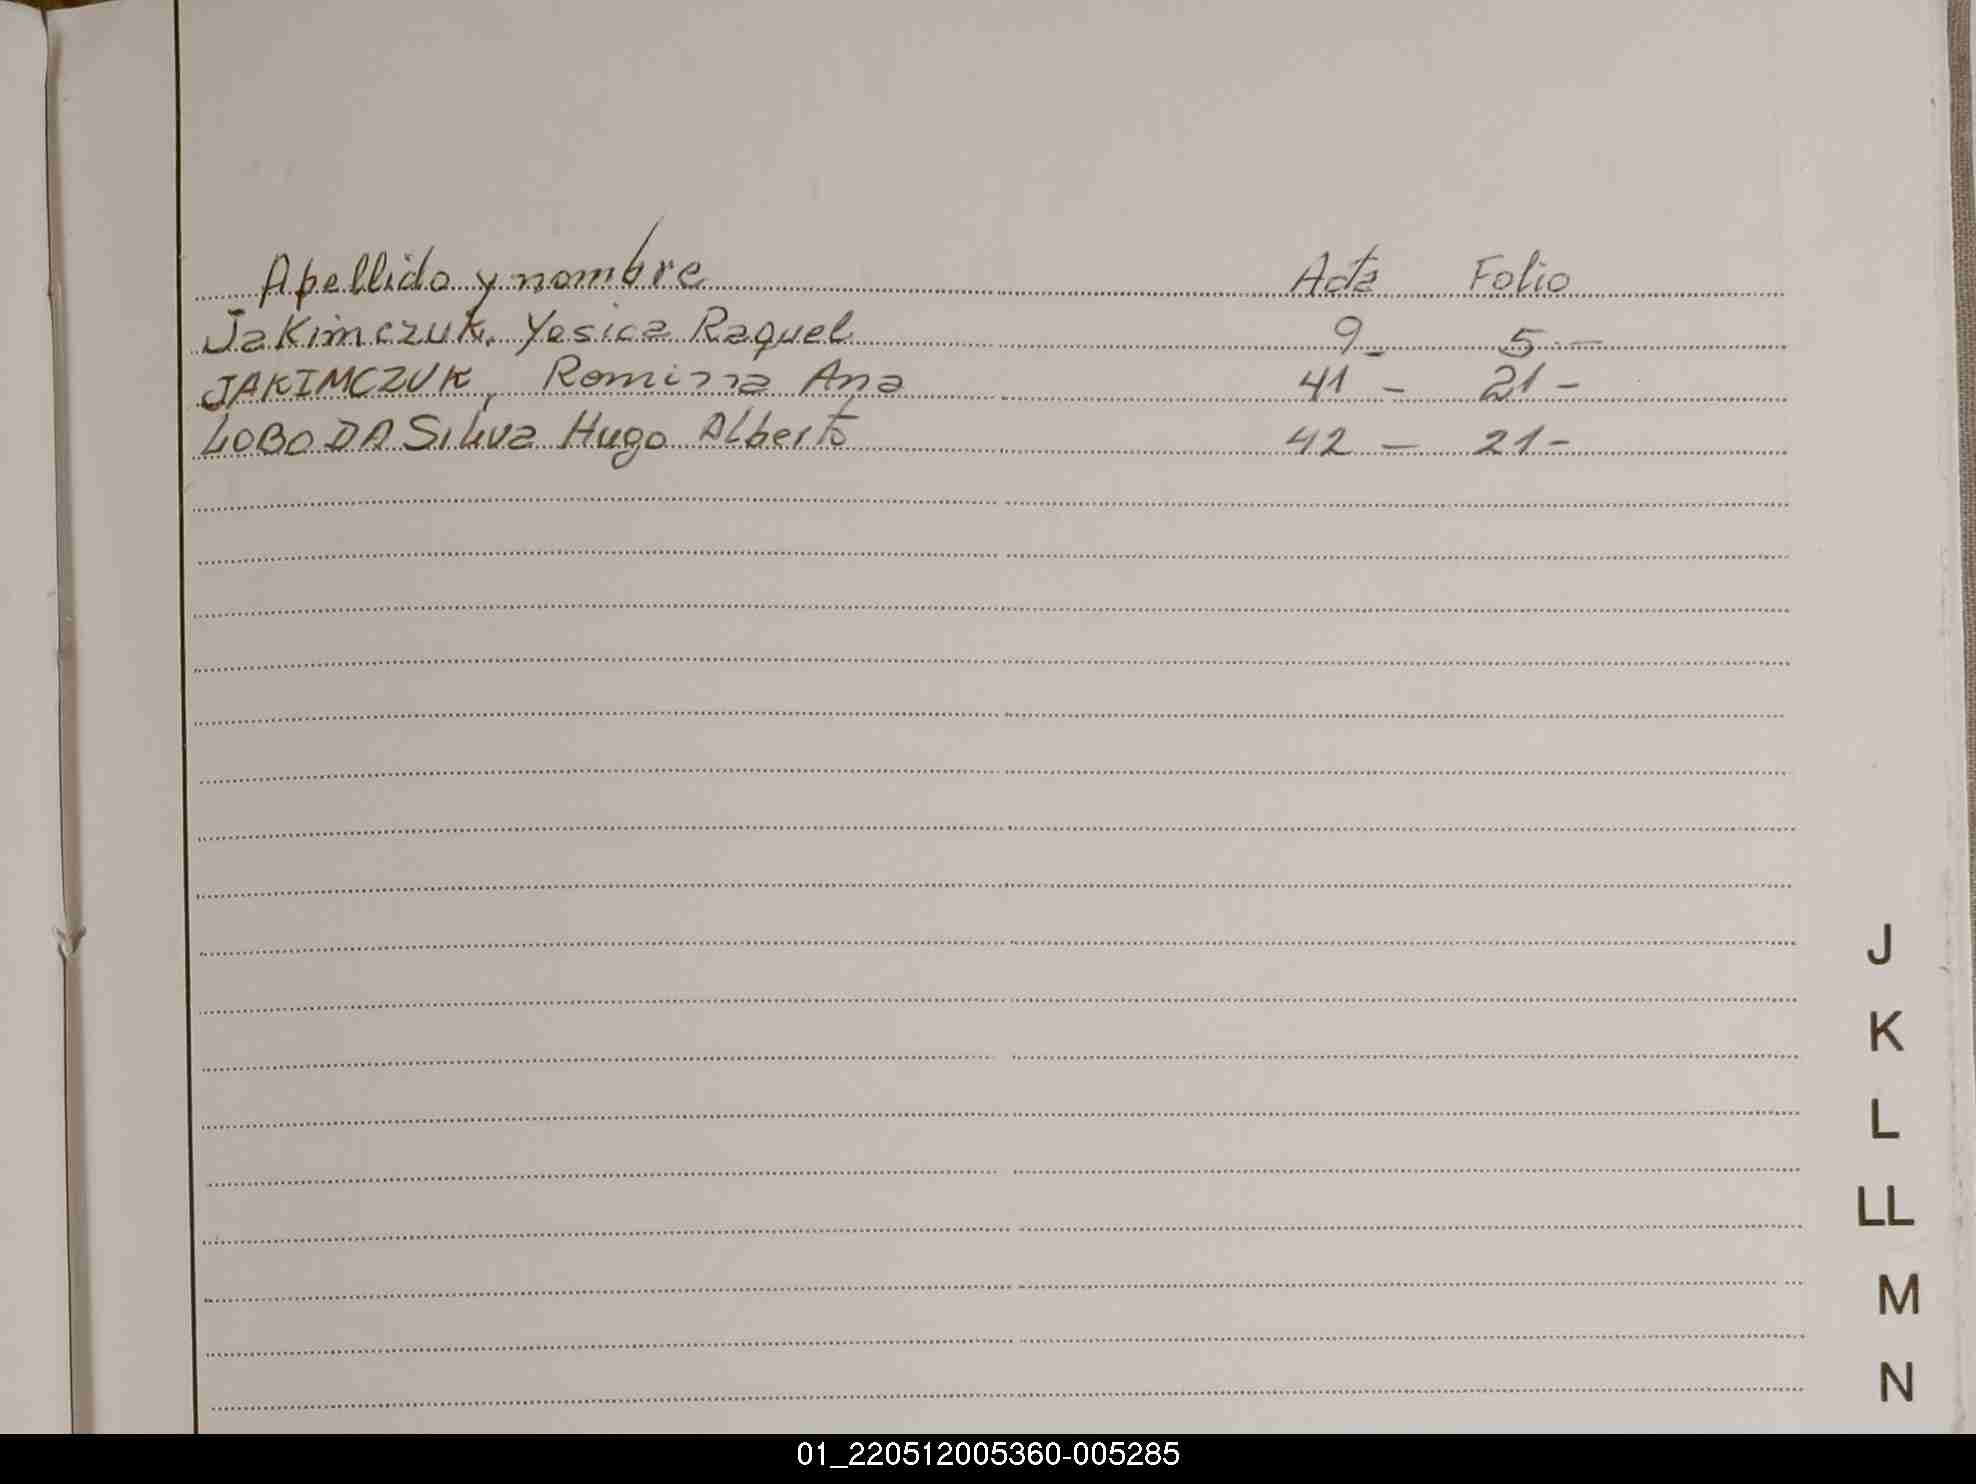 Apellido y nombre Acta Folio
Jakimczuk, Yesica Raquel 9- 5.-
JAKIMCZUK, Romina Ana 41- 21-
LOBO DA Silva Hugo Alberto 42- 21-
J
K
L
LL
M
N
01_220512005360-005285